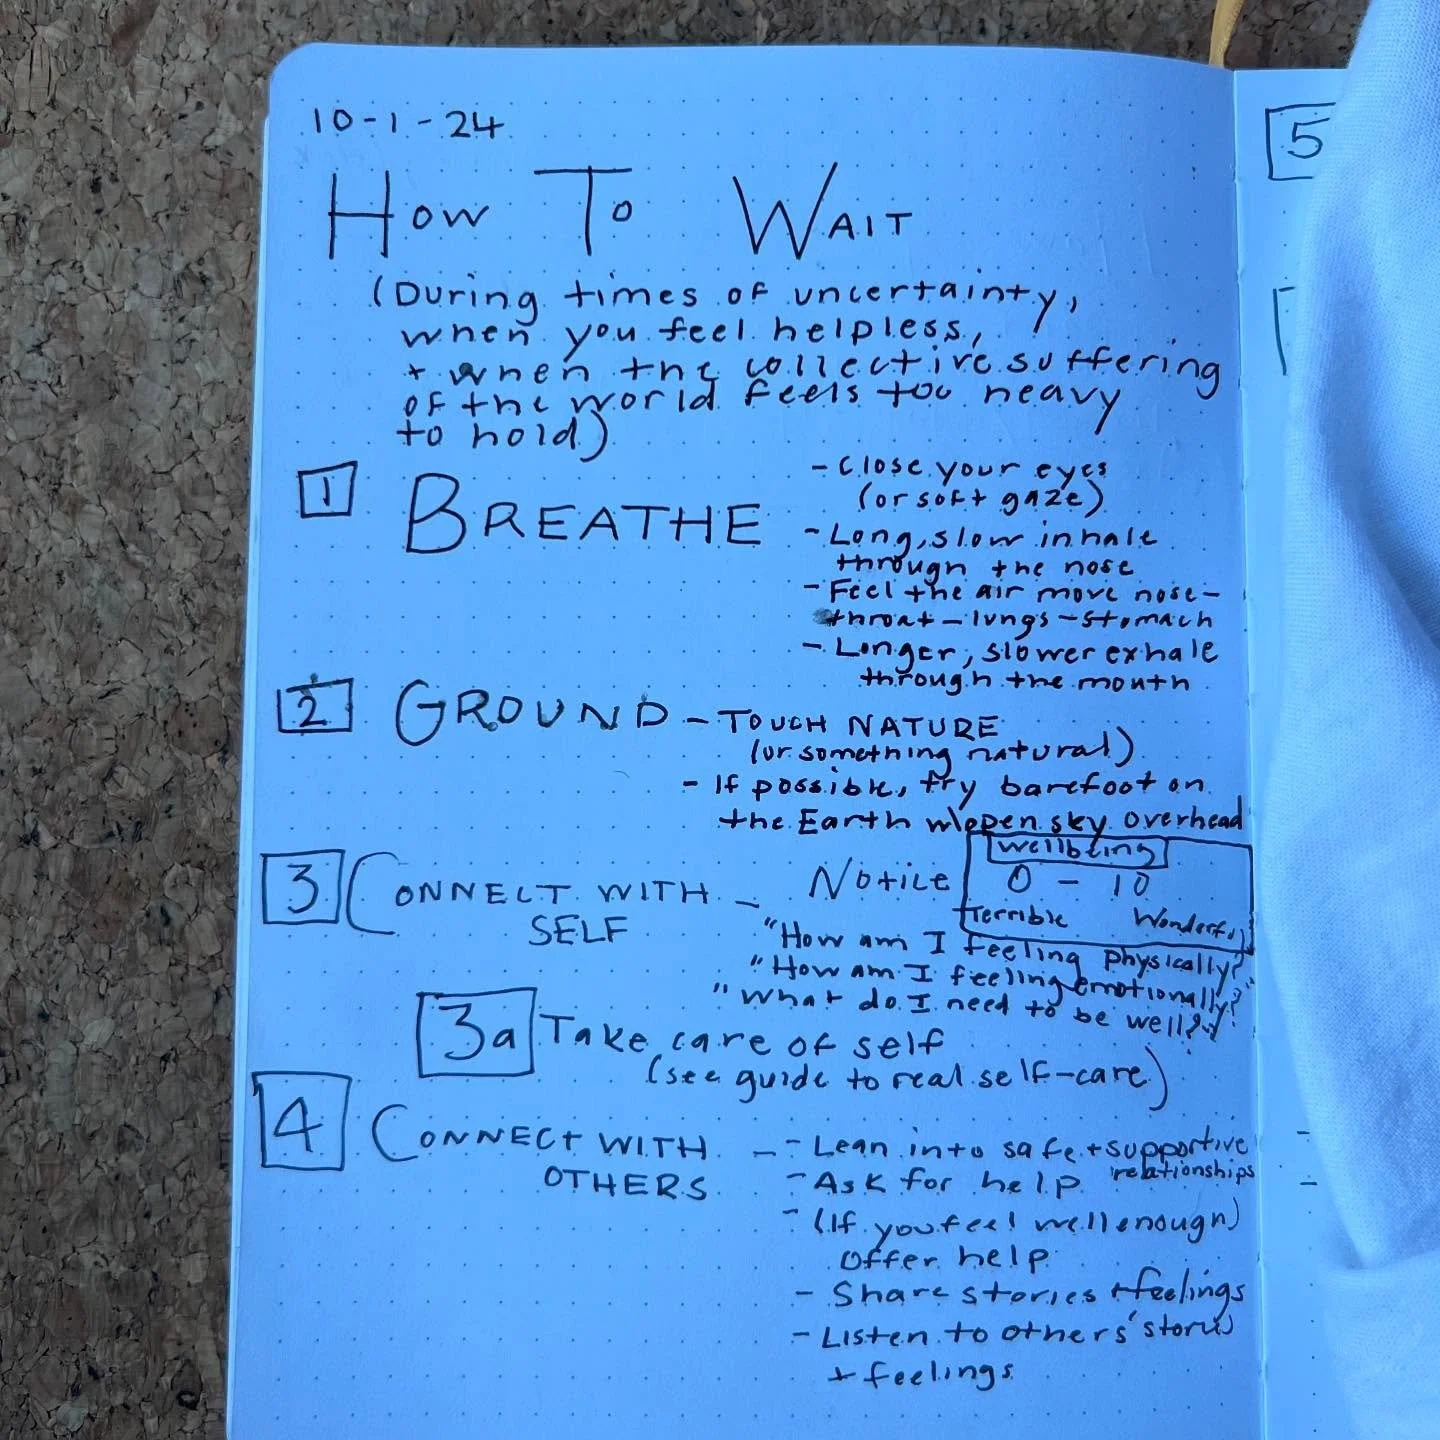 10-1-24
How To Wait
(During times of uncertainty,
when you feel helpless,
+ when the collective suffering
of the world feels too heavy
to hold)
1 BREATHE
- Close your eyes
(or soft gaze)
- Long, slow inhale
through the nose
- Feel the air move nose-
throat - lungs - stomach
- Longer, slower exhale
through the mouth
2 GROUND - TOUCH NATURE
(or something natural)
- If possible, try barefoot on
the Earth w/open sky overhead
3 CONNECT WITH
SELF
- Notice
wellbeing
0 - 10
Terrible Wonderful
"How am I feeling physically?"
"How am I feeling emotionally?"
"What do I need to be well?"
3a Take care of self
(see guide to real self-care)
4 CONNECT WITH
OTHERS
- - Lean into safe + supportive
relationships
- Ask for help
- (If you feel well enough)
offer help
- Share stories + feelings
- Listen to others' stories
+ feelings
5